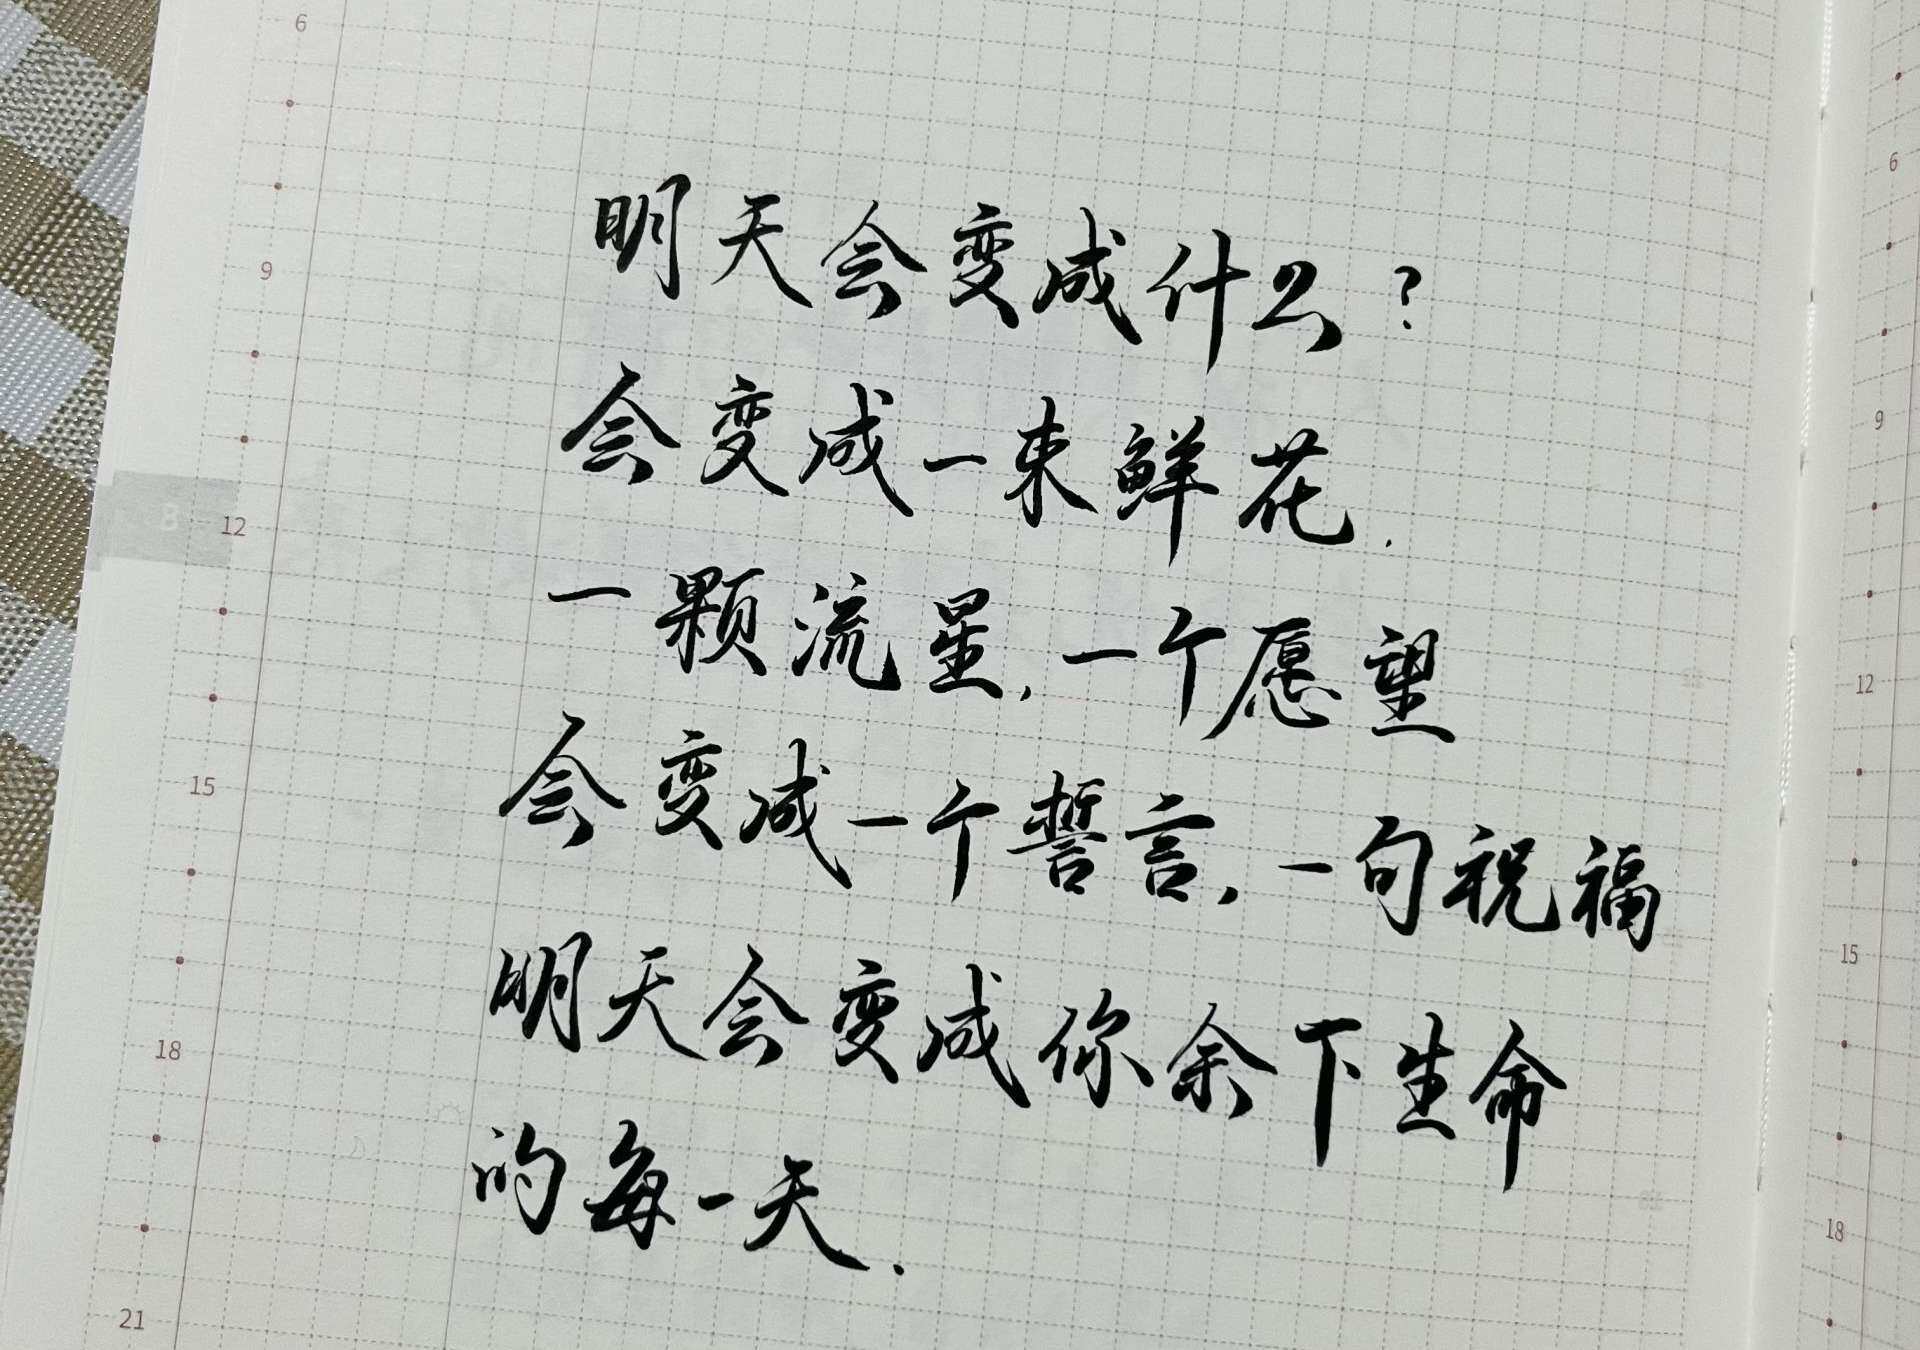 6
9
B 12
15
18
21
明天会变成什么?
会变成一束鲜花.
一颗流星,一个愿望
会变成一个誓言,一句祝福
明天会变成你余下生命
的每一天.
6
9
12
15
18